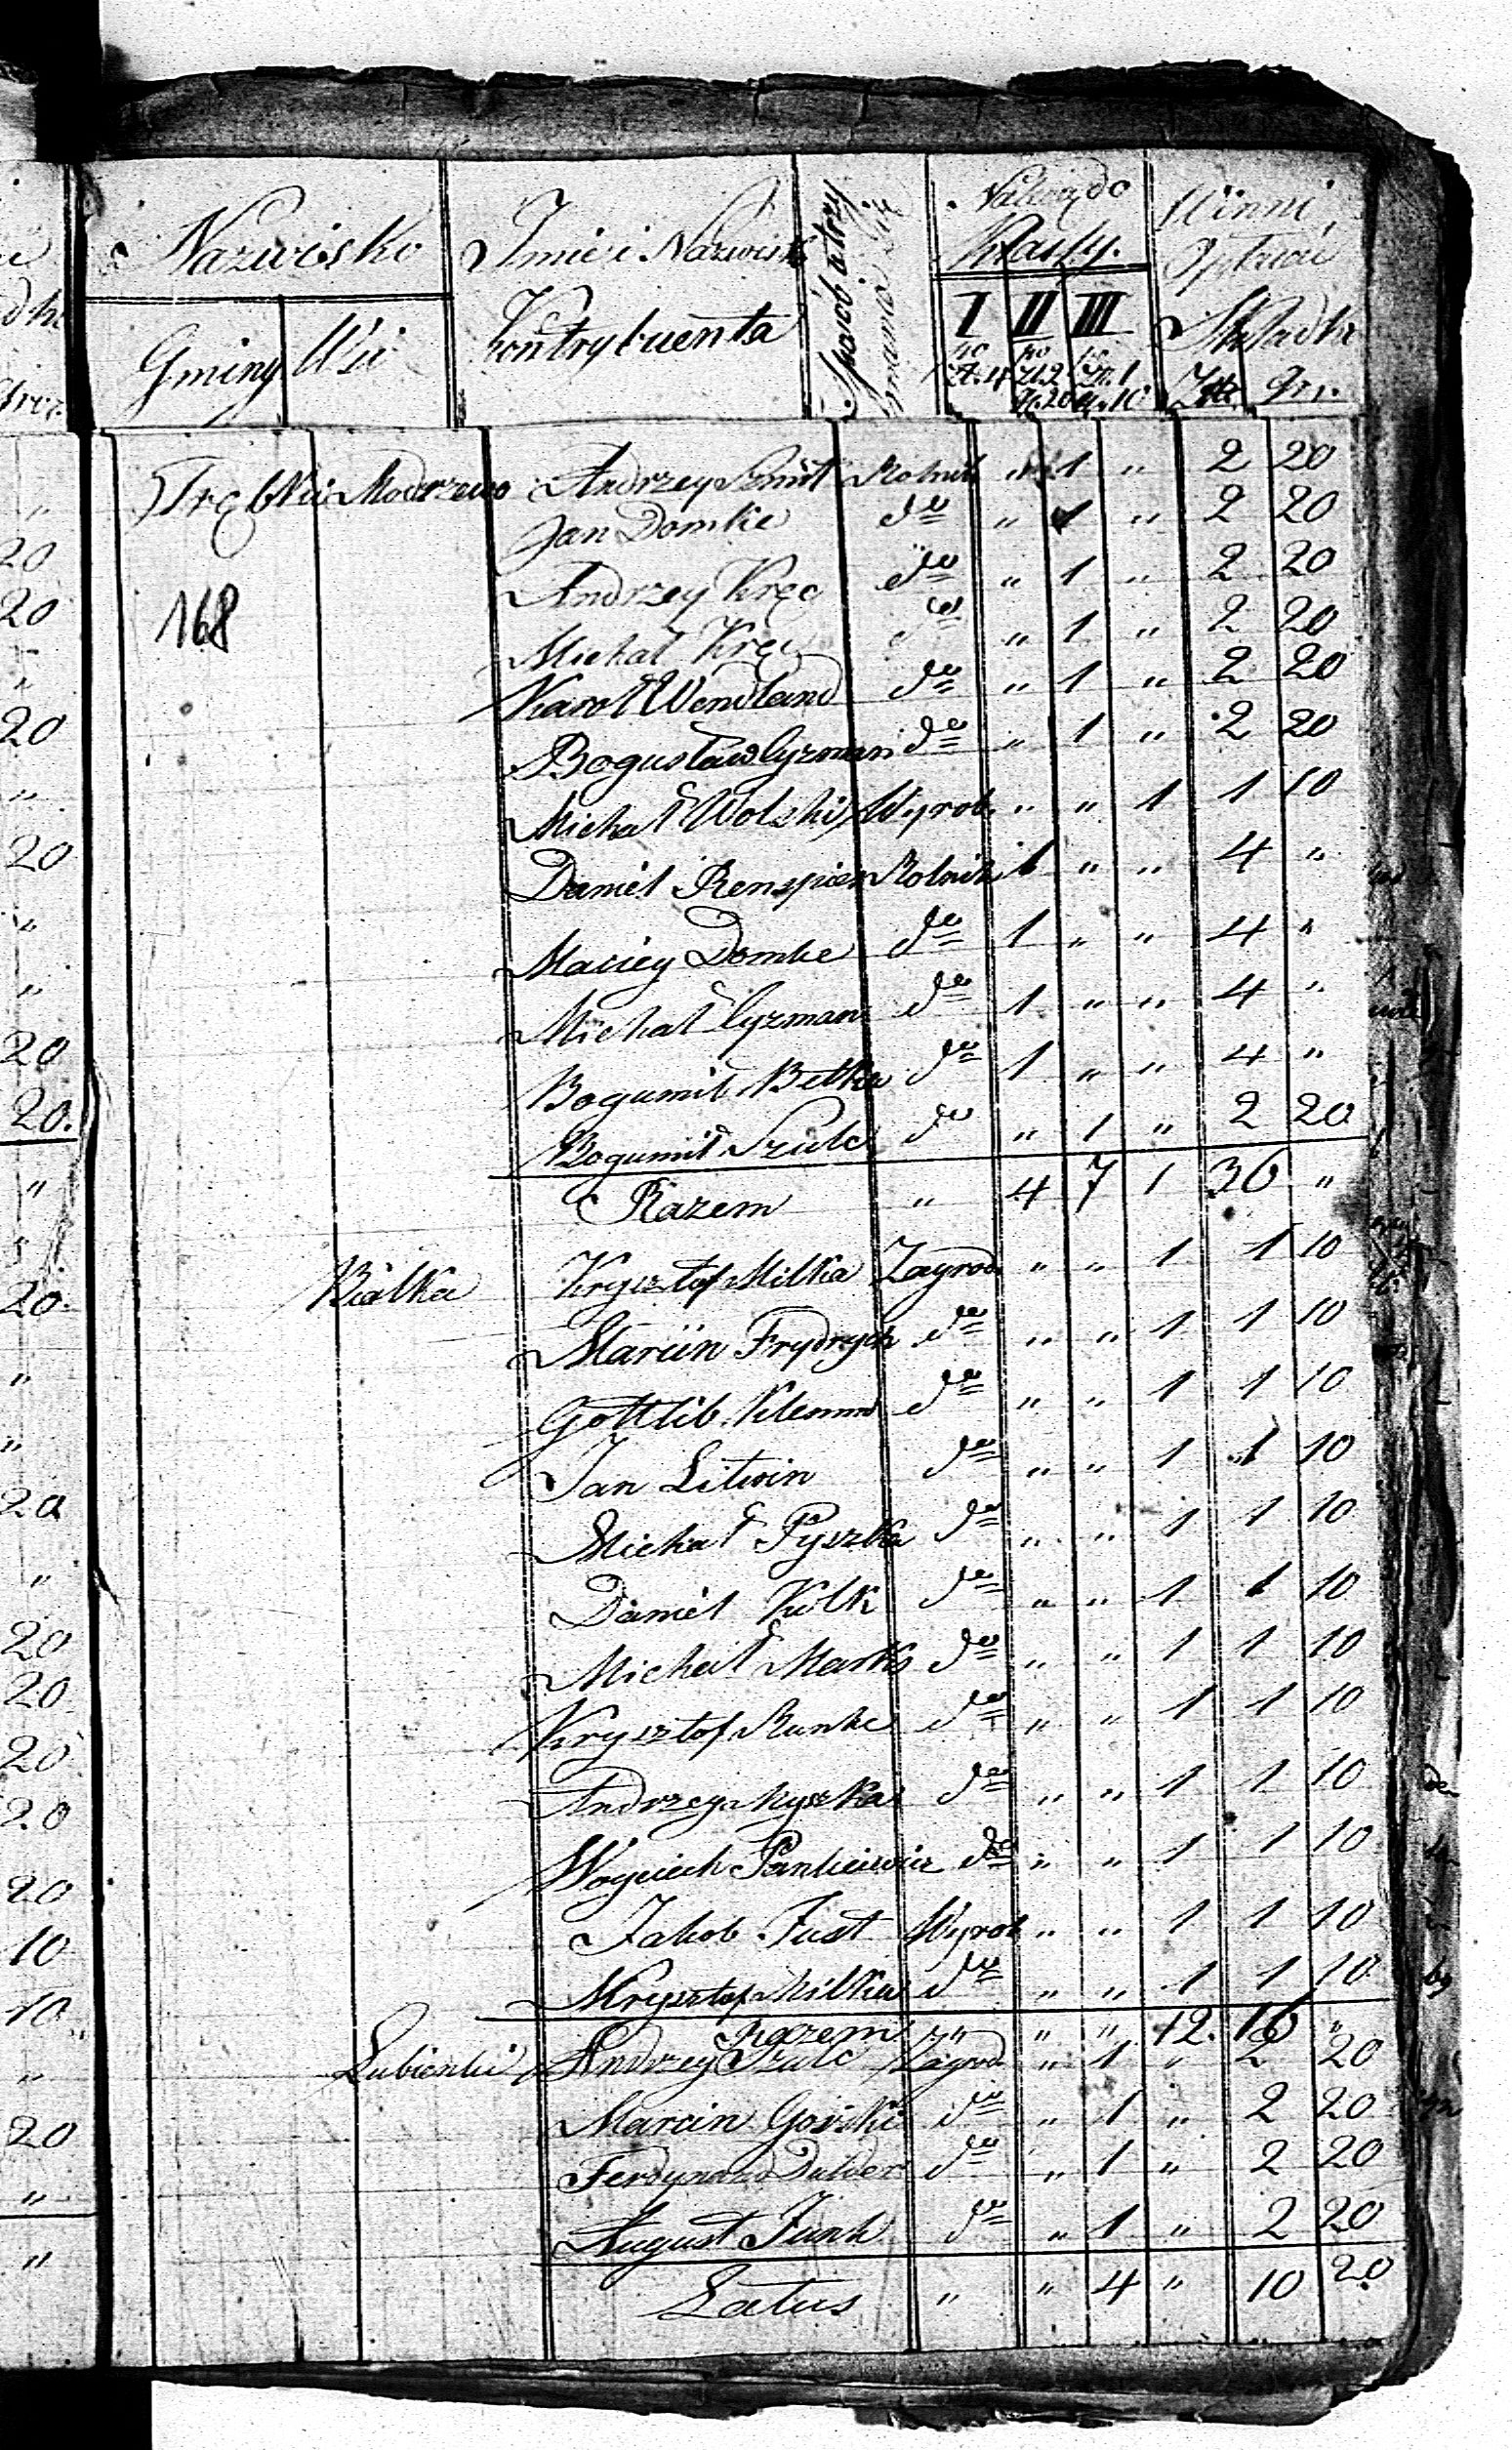 Nazwisko Imie i Nazwisko Sposób utrzymania się Należą do Klassy. Winni opłacać
Gminy Wsi Kontrybuenta I II III Składki
po Zł. 4 po Zł. 2 g. 20 po Zł. 1 g. 10 Złt. gr.
Trębki Modrzewo Andrzey Szmit Rolnik " 1 " 2 20
Jan Domke do " 1 " 2 20
Andrzey Kręc do " 1 " 2 20
168
Michał Kręc do " 1 " 2 20
Karol Wendland do " 1 " 2 20
Bogusław Cyzman do " 1 " 2 20
Michał Wolski Wyrob. " " 1 1 10
Daniel Renspies Rolnik 1 " " 4 "
Maciey Domke do 1 " " 4 "
Michał Cyzman do 1 " " 4 "
Bogumił Betke do 1 " " 4 "
Bogumił Szulc do " 1 " 2 20
Razem " 4 7 1 36 "
Białka Krysztof Milka Zagrod. " " 1 1 10
Marcin Frydrych do " " 1 1 10
Gottlib Klemm do " " 1 1 10
Jan Litwin do " " 1 1 10
Michał Pyszka do " " 1 1 10
Daniel Kolk do " " 1 1 10
Michał Marks do " " 1 1 10
Krysztof Runke do " " 1 1 10
Andrzey do " " 1 1 10
Woyciech Pankiewicz do " " 1 1 10
Jakob Just Wyrob " " 1 1 10
Krysztof Milka do " " 1 1 10
Razem " " " 12. 16 "
Lubieńki Andrzey Szulc Zagrod. " 1 " 2 20
Marcin Górski do " 1 " 2 20
Ferdynand do " 1 " 2 20
August Junk do " 1 " 2 20
Latus " " 4 " 10 20